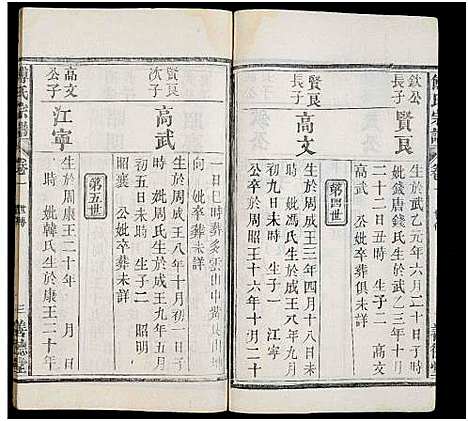 欽公
長子
賢良
生於武乙元年六月二十日子時
妣錢唐錢氏生於武乙三年十月
二十二日丑時 生子二 高文
高武 公妣卒葬俱未詳
第四世
賢良
長子
高文
生於周成王三年四月十八日未
時 妣馮氏生於成王八年九月
初九日未時 生子一 江寧
公卒於成王十六年十月十
一日巳時葬多雲山中黄良山坤
向 妣卒葬未詳
賢良
次子
高武
生於周成王八年十月初一日子
時 妣周氏生於成王九年五月
初五日未時 生子二 昭明
昭襄 公妣卒葬未詳
第五世
高文
公子
江寧
生於周康王二十年 月 日
時 妣韓氏生於康王二十年
傅氏宗譜 卷一 世傳 三 善德堂